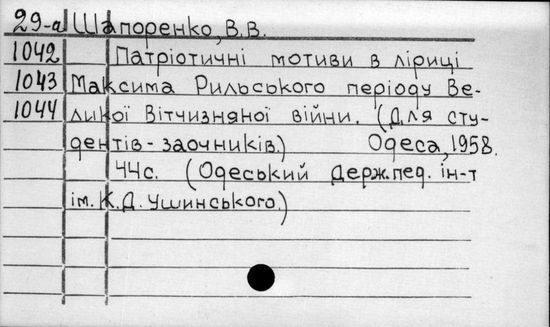 29-а Шапоренко, В.В.
1042 Патріотичні мотиви в ліриці
1043 Максима Рильського періоду Ве-
1044 ликої Вітчизняної війни. (Для сту-
дентів-заочників.) Одеса, 1958.
44с. (Одеський держ.пед. ін-т
ім. К.Д. Ушинського.)